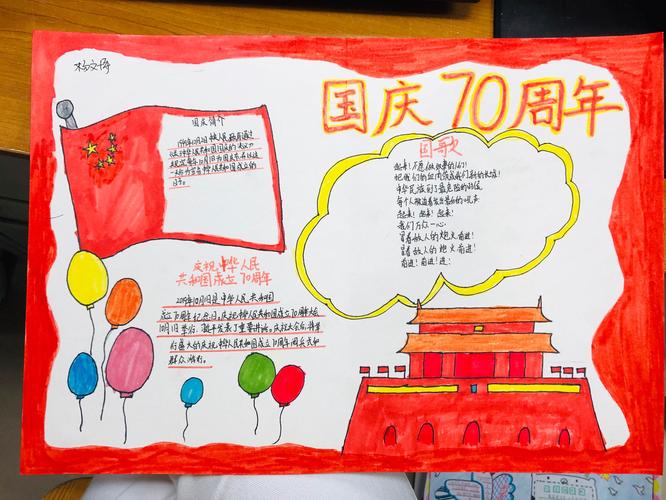 杨文博
国庆70周年
国庆简介
1949年12月2日中央人民政府通过
《关于中华人民共和国国庆日的决议》
规定每年10月1日为国庆日,并以这
一天作为宣告中华人民共和国成立的
日子。
国歌
起来!不愿做奴隶的人们!
把我们的血肉筑成我们新的长城!
中华民族到了最危险的时候
每个人被迫着发出最后的吼声
起来!起来!起来!
我们万众一心
冒着敌人的炮火前进!
冒着敌人的炮火前进!
前进!前进!进!
庆祝中华人民
共和国成立70周年
2019年10月1日是中华人民共和国
成立70周年纪念日。庆祝中华人民共和国成立70周年大会
10月1日举行,
发表了重要讲话。庆祝大会后,将举
行盛大的庆祝中华人民共和国成立70周年阅兵式和
群众游行。